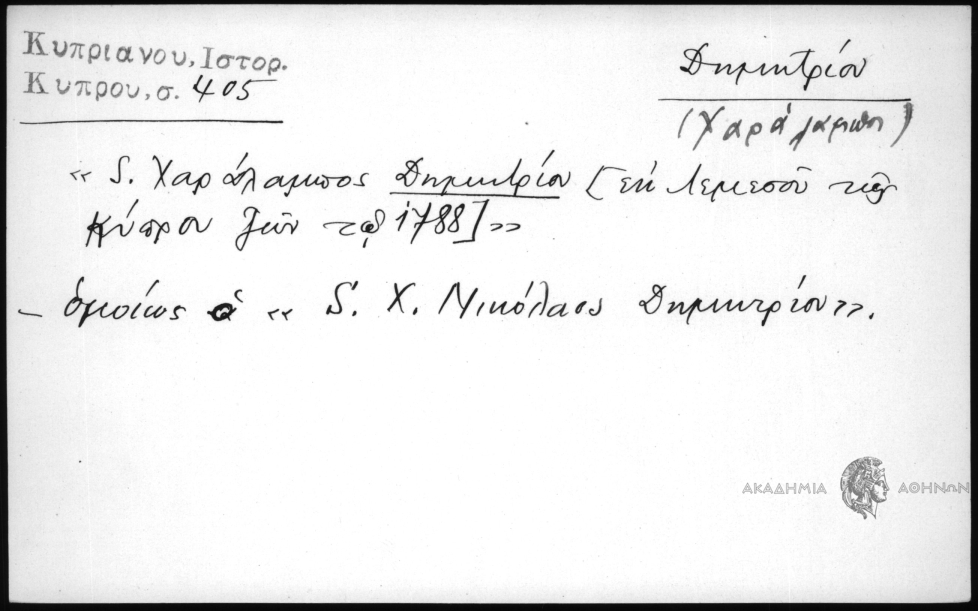 Κυπριανου, Ιστορ.
Κυπρου, σ. 405
Δημητρίου
(Χαράλαμπος)
« S. Χαράλαμπος Δημητρίου [ἐκ Λεμεσοῦ τῆς
Κύπρου ζῶν τῷ 1788] »
– ὁμοίως ὁ « S. Χ. Νικόλαος Δημητρίου ».
ΑΚΑΔΗΜΙΑ ΑΘΗΝΩΝ